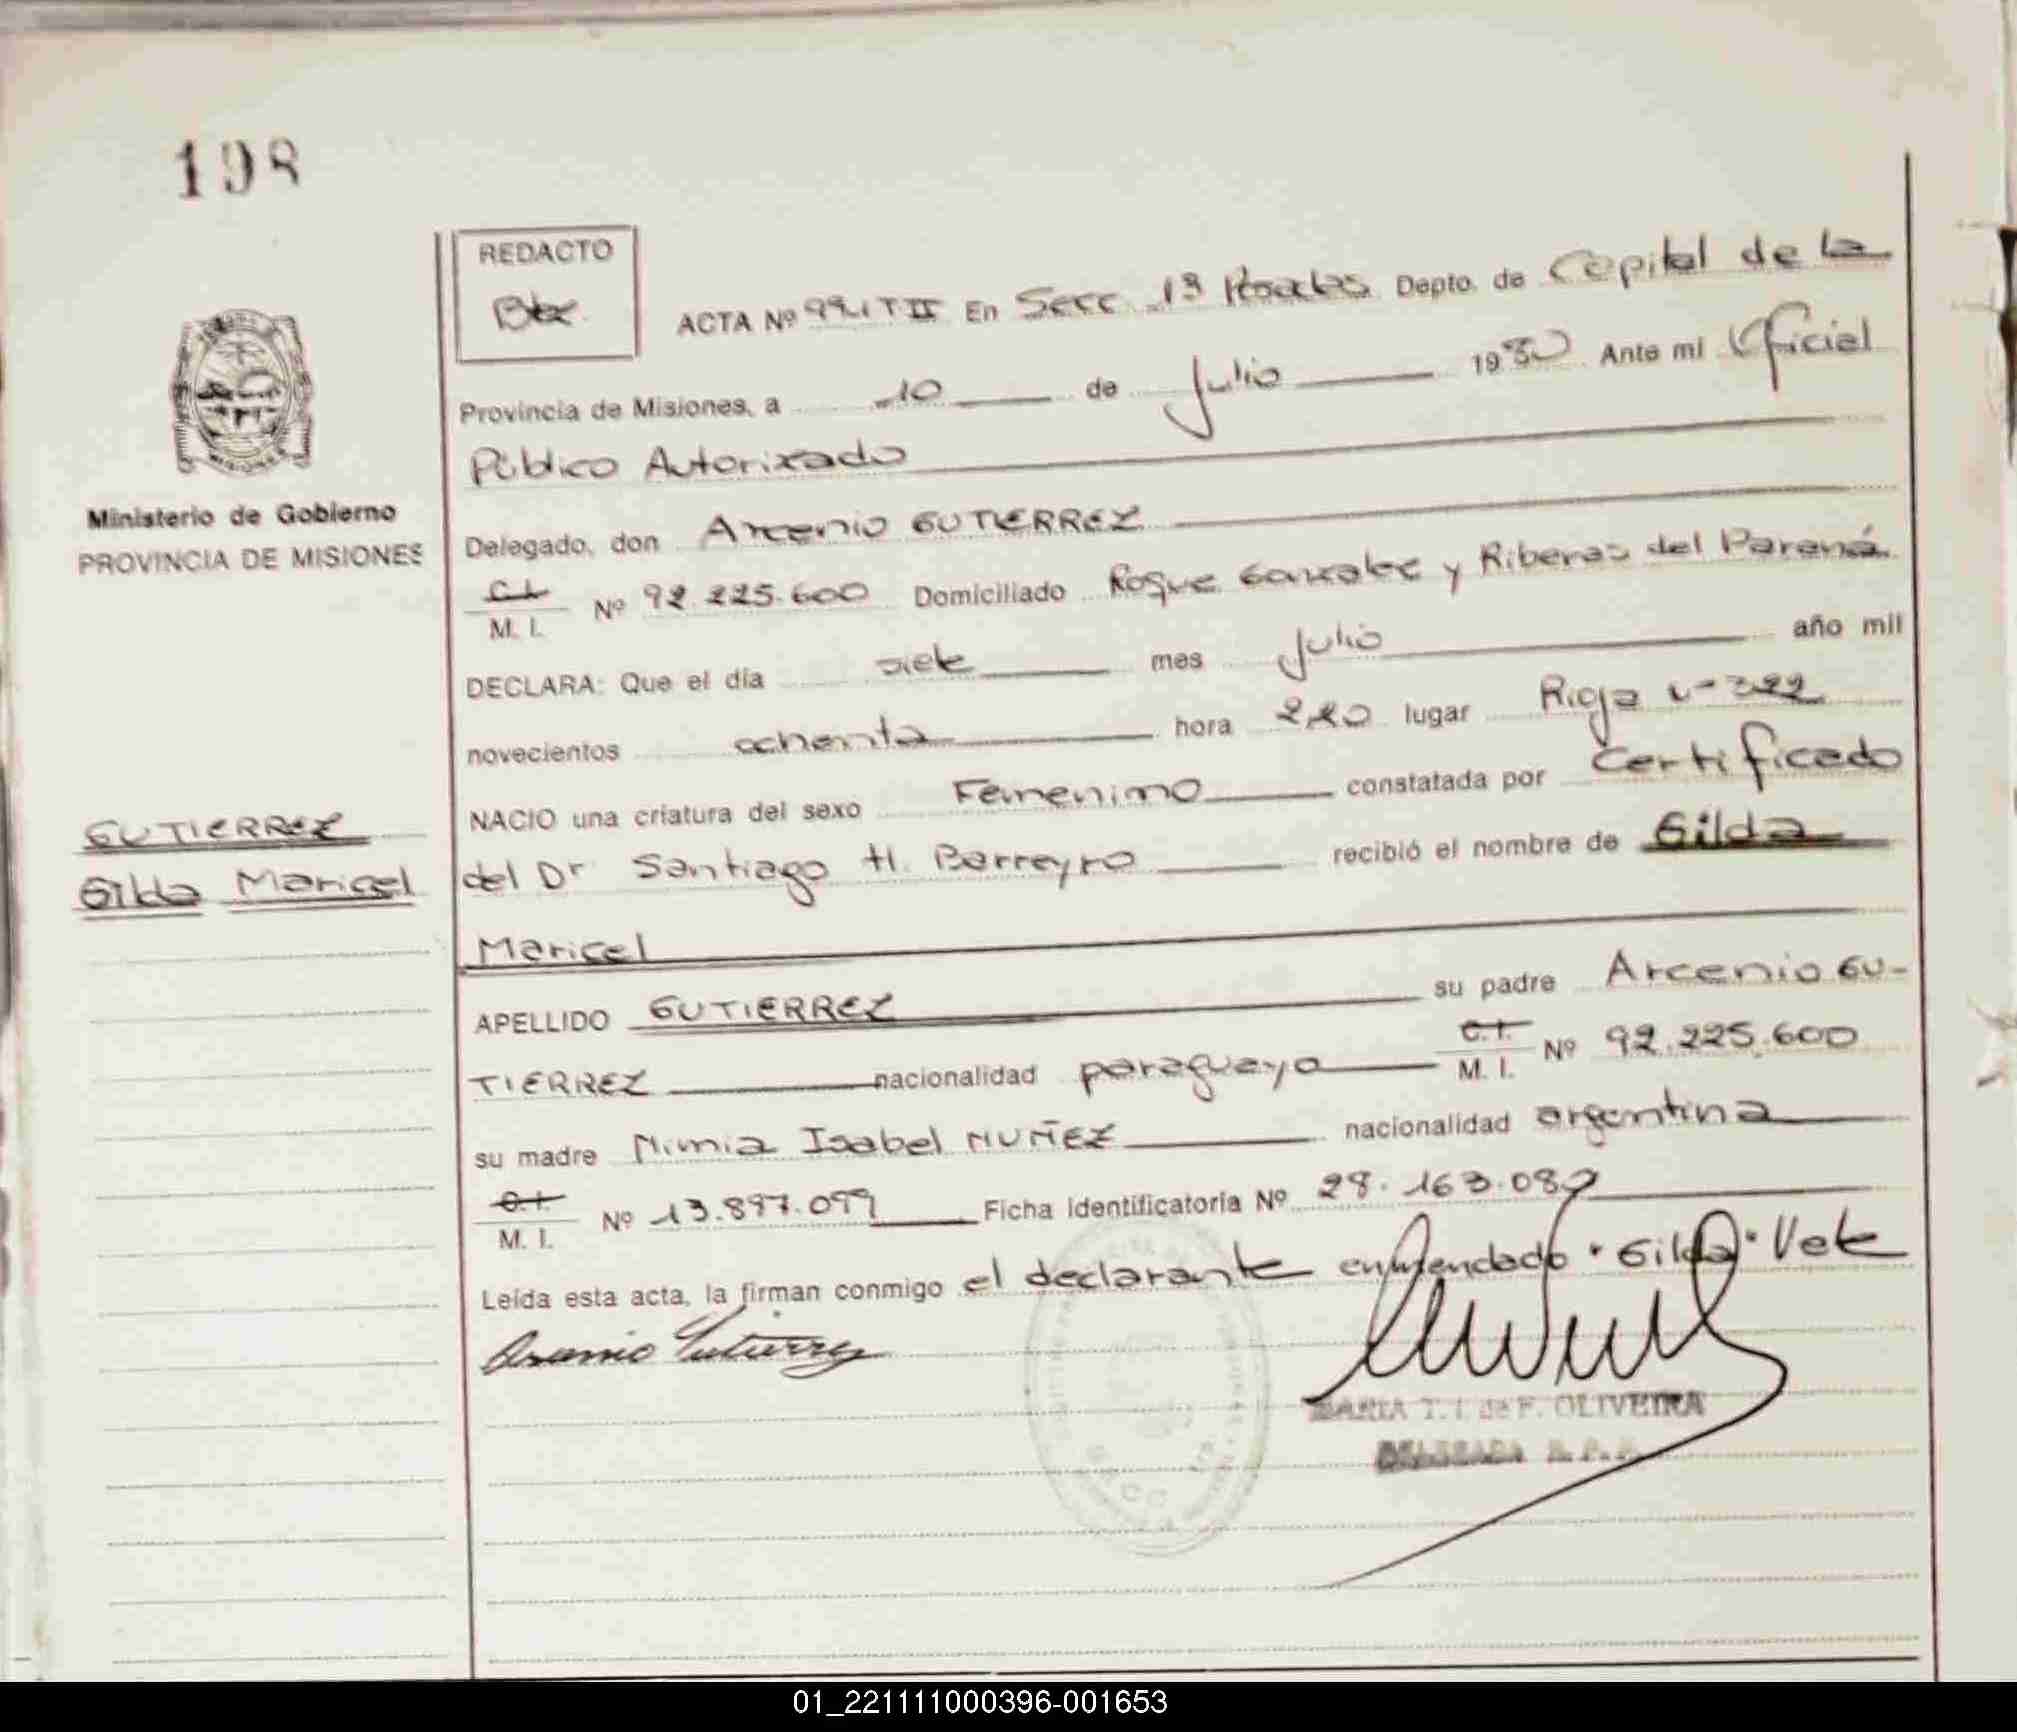 198
REDACTO
ACTA Nº 991 T II En Secc 1ª Posadas Depto. de Capital de la
Provincia de Misiones, a 10 de Julio 1980 Ante mi Oficial
Público Autorizado
Ministerio de Gobierno
PROVINCIA DE MISIONES
Delegado, don Arcenio GUTIERREZ
C.I. M. I. Nº 92.225.600 Domiciliado Roque Gonzalez y Riberas del Paraná
DECLARA: Que el día siete mes Julio año mil
novecientos ochenta hora 2,20 lugar Rioja 322
NACIO una criatura del sexo Femenino constatada por Certificado
GUTIERREZ
Gilda Maricel
del Dr Santiago H. Barreyro recibió el nombre de Gilda
Maricel
APELLIDO GUTIERREZ su padre Arcenio GU-
TIERREZ nacionalidad paraguayo C.I. M. I. Nº 92.225.600
su madre Mimia Isabel NUÑEZ nacionalidad argentina
C.I. M. I. Nº 13.897.099 Ficha Identificatoria Nº 28.163.089
Leída esta acta, la firman conmigo el declarante enmendado "Gilda" Vale
Arcenio Gutierrez
MARIA T. I. de F. OLIVEIRA
DELEGADA R. P. P.
01_221111000396-001653